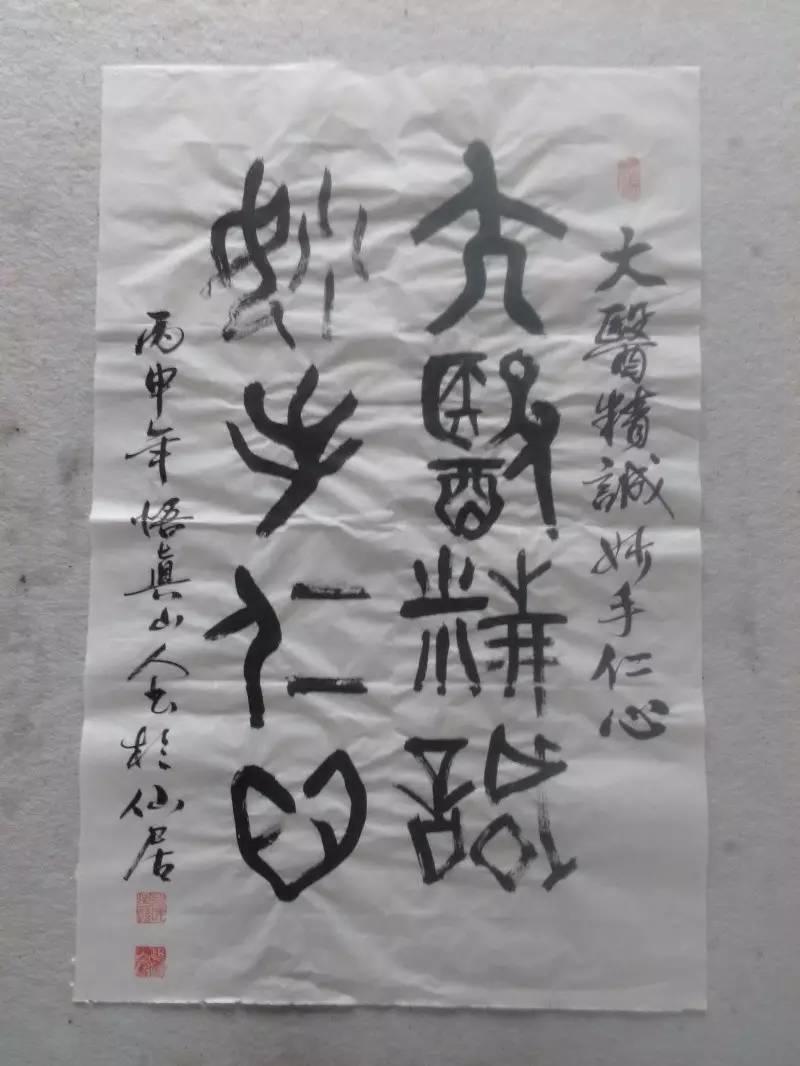 大醫精誠妙手仁心
大醫精誠
妙手仁心
丙申年悟真山人书於仙居